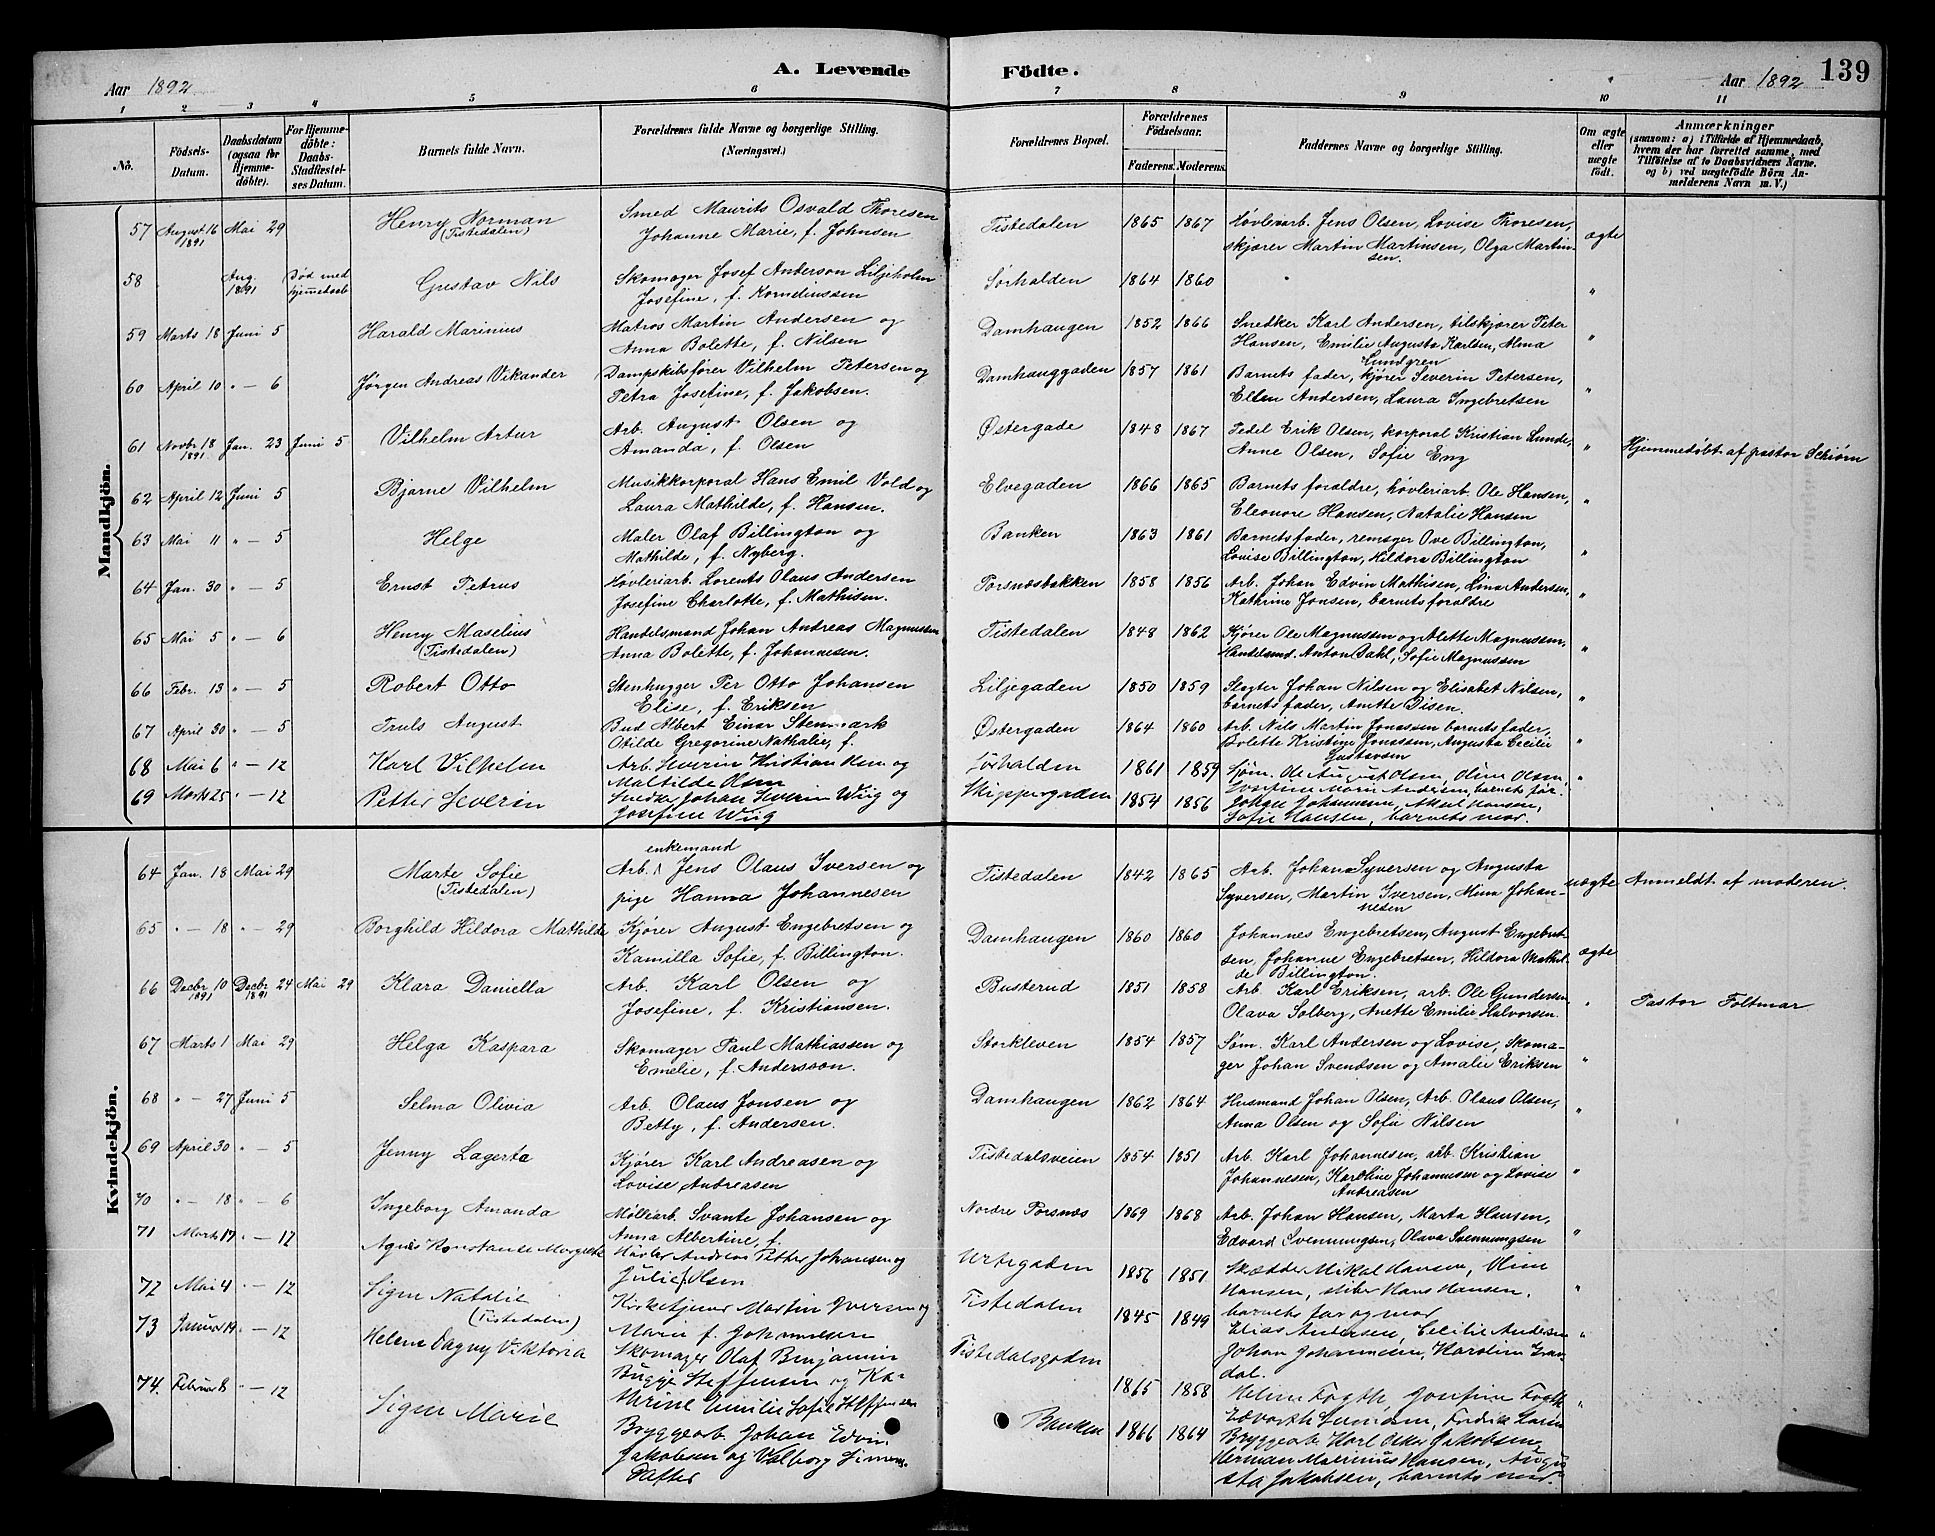 A. Levende Födte.
139
Aar 1892
Aar 1892
1 2 3 4 5 6 7 8 9 10 11
No.
Födsels-Datum.
Daabsdatum (ogsaa for Hjemme-döbte).
For Hjemme-döbte: Daabs-Stadfæstel-ses Datum.
Barnets fulde Navn.
Forældrenes fulde Navne og borgerlige Stilling. (Næringsvei.)
Forældrenes Bopæl.
Forældrenes Födselsaar.
Faderens. Moderens.
Faddernes Navne og borgerlige Stilling.
Om ægte eller uægte födt.
Anmærkninger
(saasom: a) i Tilfælde af Hjemmedaab, hvem der har forrettet samme, med Tilföielse af to Daabsvidners Navne, og b) ved uægtefödte Börn An-melderens Navn m. V.)
Mandkjön.
57 August 16 1891 Mai 29 Henry Norman (Tistedalen) Smed Maurits Osvald Thoresen Johanne Marie, f. Johnsen Tistedalen 1865 1867 Høvleriarb. Jens Olsen, Lovise Thoresen, skjærer Martin Martinsen, Olga Martinsen. ægte
58 Aug. 1891 Død med hjemmedaab Gustav Nils Skomager Josef Anderson Liljeholm Josefine, f. Korneliussen Sørhalden 1864 1860 "
59 Marts 18 Juni 5 Harald Marinius Matros Martin Andersen og Anna Bolette, f. Nilsen Damhaugen 1852 1866 Snedker Karl Andersen, tilskjærer Peter Hansen, Emilie Augusta Karlsen, Alma Lundgren "
60 April 10 " — 6 Jørgen Andreas Vikander Dampskibsfører Vilhelm Petersen og Petra Josefine, f. Jakobsen. Damhauggaden 1857 1861 Barnets fader, kjører Severin Petersen, Ellen Andersen, Laura Ingebretsen "
61 Novbr 18 1891. Jan. 23 Juni 5 Vilhelm Artur Arb. August Olsen og Amanda, f. Olsen Østergade 1848 1867 Pedel Erik Olsen, korporal Kristian Lunde, Anne Olsen, Sofie Eng " Hjemmedøbt af pastor Schiørn
62 April 12 Juni 5 Bjarne Vilhelm Musikkorporal Hans Emil Vold og Laura Mathilde, f. Hansen. Elvegaden 1866 1865 Barnets foraldre, høvleriarb. Ole Hansen, Eleonore Hansen, Natalie Hansen "
63 Mai 11 " — 5 Helge Maler Olaf Billington og Mathilde, f. Nyberg. Banken 1863 1861 Barnets fader, remsger Ove Billington, Louise Billington, Hildora Billington "
64 Jan. 30 " — 5 Ernst Petrus Høvleriarb. Lorents Olaus Andersen Josefine Charlotte, f. Mathisen. Porsnæsbakken 1858 1856 Arb. Johan Edvin Mathisen, Lina Andersen, Kathrine Jonsen, barnets foraldre "
65 Mai 5 " — 6 Henry Maselius (Tistedalen) Handelsmand Johan Andreas Magnussen Anna Bolette, f. Johannesen. Tistedalen 1848 1862 Kjører Ole Magnussen og Alette Magnussen, Handelsmd. Anton Dahl, Sofie Magnussen "
66 Febr. 13 " — 5 Robert Otto Stenhugger Per Otto Johansen Elise, f. Eriksen Liljegaden 1850 1859 Slagter Johan Nilsen og Elisabet Nilsen, barnets fader, Anette Disen. "
67 April 30 " — 5 Truls August Bud Albert Einar Stenmark Otilde Gregorine Nathalie, f. Østergaden 1864 1860 Arb. Nils Martin Jonassen barnets fader, Bolette Kristine Jonassen, Augusta Cecilie Gustavsen "
68 Mai 6 " — 12 Karl Vilhelm Arb. Severin Kristiansen og Mathilde Olsen Sørhalden 1861 1859 Sjøm. Ole August Olsen, Oline Olsen, Josefine Marie Andersen, barnets far. "
69 Marts 25 " — 12 Petter Severin Snedker Johan Severin Wiig og Josefine Wiig Skippergaden 1854 1856 Johan Johannesen, Aksel Hansen, Sofie Hansen, barnets mor.
Kvindekjön.
64 Jan. 18 Mai 29 Marte Sofie (Tistedalen) Arb. enkemand Jens Olaus Iversen og pige Hanna Johannesen Tistedalen 1842 1865 Arb. Johan Syversen og Augusta Syversen, Martin Iversen, Mina Johannesen uægte Anmeldt af moderen.
65 " — 18 " — 29 Borghild Hildora Mathilde Kjører August Engebretsen og Kamilla Sofie, f. Billington. Damhaugen 1860 1860 Johannes Engebretsen, August Engebretsen, Johanne Engebretsen, Hildora Mathilde Billington. ægte
66 Decbr 10 1891 Decbr 24 1891 Mai 29 Klara Daniella Arb. Karl Olsen og Josefine, f. Kristiansen. Busterud 1851 1858 Arb. Karl Eriksen, arb. Ole Gundersen Olava Solberg, Anette Emilie Halvorsen. " Pastor Foltmar
67 Marts 1 Mai 29 Helga Kaspara Skomager Paul Mathiassen og Emelie, f. Andersson. Storkleven 1854 1857 Søm. Karl Andersen og Lovise, Skomager Johan Svendsen og Amalie Eriksen "
68 " — 27 Juni 5 Selma Olivia Arb. Olaus Jonsen og Betty, f. Andersen. Damhaugen 1862 1864 Husmand Johan Olsen, Arb. Olaus Olsen, Anna Olsen og Sofie Nilsen "
69 April 30 " — 5 Jenny Lagerta Kjører Karl Andreasen og Lovise Andreasen Tistedalsveien 1854 1851 Arb. Karl Johannesen, arb. Kristian Johannesen, Karoline Johannesen og Lovise Andreasen "
70 " — 18 " — 6 Ingeborg Amanda Møllearb. Svante Johansen og Anna Albertine, f. Nordre Porsnæs 1869 1868 Arb. Johan Hansen, Marta Hansen, Edvard Svenningsen, Olava Svenningsen "
71 Marts 17 " — 12 Agnes Konstanse Margrethe Høvler Andreas Petter Johansen og Julie f. Olsen Urtegaden 1856 1851 Skrædder Mikal Hansen, Oline Hansen, sliber Hans Hansen, barnets far og mor "
72 Mai 4 " — 12 Signe Natalie (Tistedalen) Kirketjener Martin Iversen og Marie f. Johannesen Tistedalen 1845 1849 Elias Andersen, Cecilie Andersen Johan Johannesen, Karoline "
73 Januar 19 " — 12 Helene Dagny Viktoria Skomager Olaf Benjamin Bugge Steffensen og Katrine Emilie Sofie Steffensen Tistedalsgaden 1865 1858 Josefine Fredrik "
74. Februar 8 " — 12 Signe Marie Bryggearb. Johan Edvin Jakobsen og Valborg Banken 1866 1864 Bryggearb. Karl Oskar Jakobsen, Herman Marinius Hansen, Augusta Jakobsen, barnets mor.